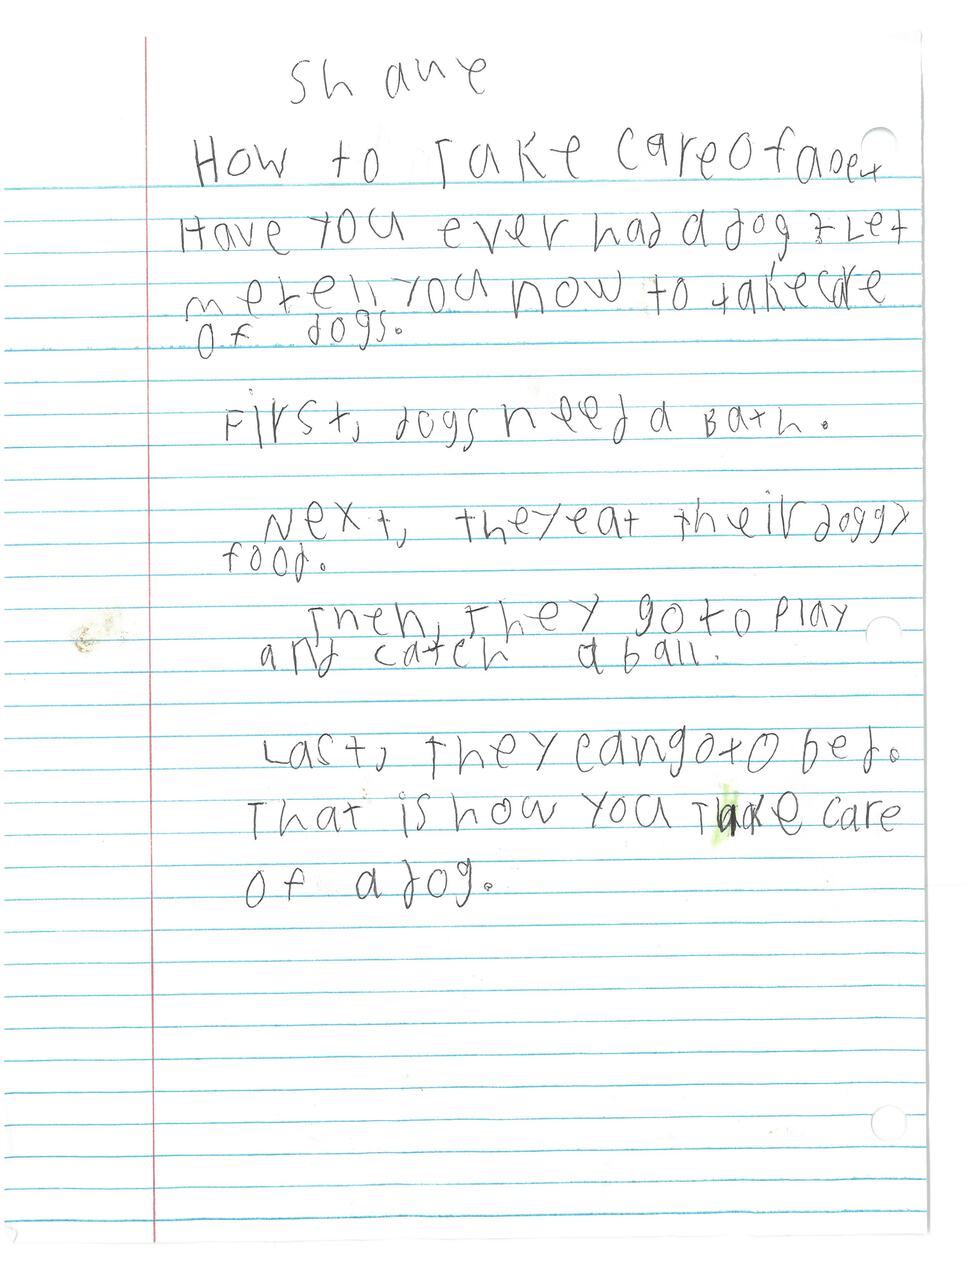 Shane
How to Take care of a pet
Have you ever had a dog? Let
me tell you how to take care
of dogs.
First, dogs need a Bath.
Next, they eat their doggy
food.
Then, they go to play
and catch a ball.
Last, they can go to bed.
That is how you Take care
of a dog.